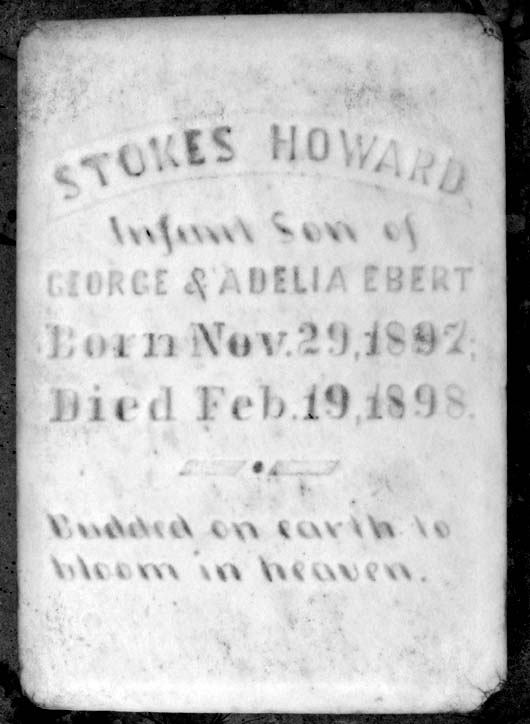 STOKES HOWARD
Infant Son of
GEORGE & ADELIA EBERT
Born Nov. 29, 1897;
Died Feb. 19, 1898.
Budded on earth to
bloom in heaven.